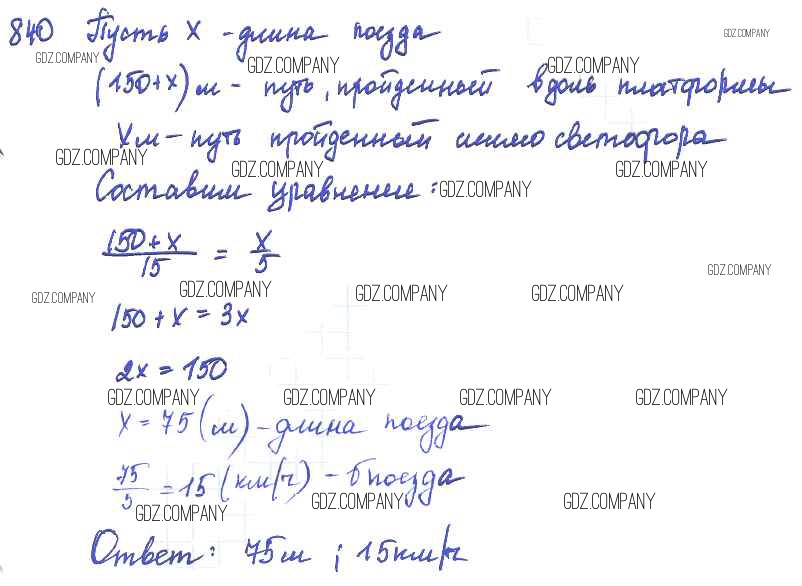 840 Пусть x - длина поезда
GDZ.COMPANY
GDZ.COMPANY GDZ.COMPANY GDZ.COMPANY
(150+x) м - путь, пройденный вдоль платформы
x м - путь пройденный мимо светофора
GDZ.COMPANY GDZ.COMPANY GDZ.COMPANY
Составим уравнение: GDZ.COMPANY
150+x/15 = x/5
GDZ.COMPANY
GDZ.COMPANY GDZ.COMPANY GDZ.COMPANY GDZ.COMPANY
150 + x = 3x
2x = 150
GDZ.COMPANY GDZ.COMPANY GDZ.COMPANY GDZ.COMPANY
x = 75 (м) - длина поезда
75/5 = 15 (км/ч) - поезда
GDZ.COMPANY GDZ.COMPANY GDZ.COMPANY
Ответ: 75м ; 15км/ч